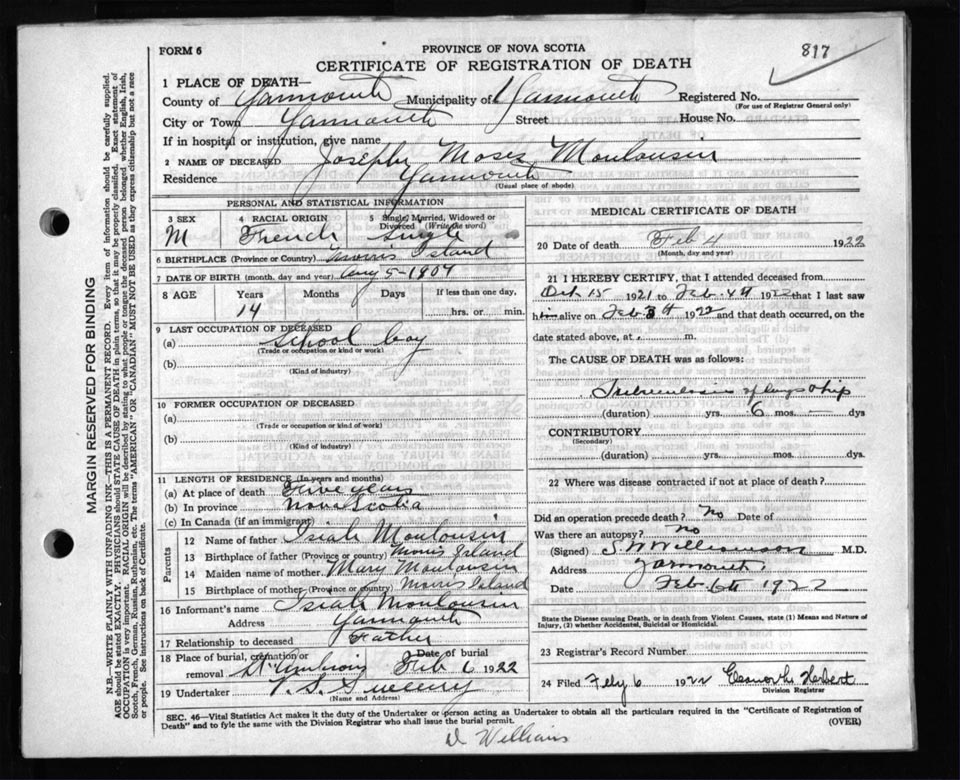 817
FORM 6
PROVINCE OF NOVA SCOTIA
CERTIFICATE OF REGISTRATION OF DEATH
1 PLACE OF DEATH—
County of Yarmouth Municipality of Yarmouth Registered No.
(For use of Registrar General only)
City or Town Yarmouth Street House No.
If in hospital or institution, give name
2 NAME OF DECEASED Joseph Moses Moulousin
Residence Yarmouth
(Usual place of abode)
PERSONAL AND STATISTICAL INFORMATION
3 SEX 4 RACIAL ORIGIN 5 Single, Married, Widowed or Divorced (Write the word)
M French Single
6 BIRTHPLACE (Province or Country) Morris Island
7 DATE OF BIRTH (month, day and year) Aug 5-1907
8 AGE Years Months Days If less than one day,
14 hrs. or min.
9 LAST OCCUPATION OF DECEASED
(a) School boy
(Trade or occupation or kind of work)
(b)
(Kind of industry)
10 FORMER OCCUPATION OF DECEASED
(a)
(Trade or occupation or kind of work)
(b)
(Kind of industry)
11 LENGTH OF RESIDENCE (In years and months)
(a) At place of death Five years
(b) In province Nova Scotia
(c) In Canada (if an immigrant)
Parents
12 Name of father Isiah Moulousin
13 Birthplace of father (Province or Country) Morris Island
14 Maiden name of mother Mary Moulousin
15 Birthplace of mother (Province or country) Morris Island
16 Informant's name Isiah Moulousin
Address Yarmouth
17 Relationship to deceased Father
18 Place of burial, cremation or removal Date of burial
St Ambrois Feb 6 1922
19 Undertaker V. S. Sweeny
(Name and Address)
MEDICAL CERTIFICATE OF DEATH
20 Date of death Feb 4 1922
(Month, day and year)
21 I HEREBY CERTIFY, that I attended deceased from
Oct 15 1921 to Feb. 4th 1922 that I last saw
him alive on Feb 3d 1922 and that death occurred, on the
date stated above, at m.
The CAUSE OF DEATH was as follows:
Tuberculosis of lungs & hip
(duration) yrs. 6 mos. — dys
CONTRIBUTORY
(Secondary)
(duration) yrs. mos. dys.
22 Where was disease contracted if not at place of death?
Did an operation precede death? No Date of
Was there an autopsy? No
(Signed) S. W. Williamson M.D.
Address Yarmouth
Date Feb 6th 1922
State the Disease causing Death, or in death from Violent Causes, state (1) Means and Nature of Injury, (2) whether Accidental, Suicidal or Homicidal.
23 Registrar's Record Number
24 Filed Feby 6 1922 Herbert
Division Registrar
SEC. 46—Vital Statistics Act makes it the duty of the Undertaker or person acting as Undertaker to obtain all the particulars required in the "Certificate of Registration of
Death" and to fyle the same with the Division Registrar who shall issue the burial permit.
(OVER)
D Williams
MARGIN RESERVED FOR BINDING
N.B.—WRITE PLAINLY WITH UNFADING INK—THIS IS A PERMANENT RECORD. Every item of information should be carefully supplied.
AGE should be stated EXACTLY. PHYSICIANS should STATE CAUSE OF DEATH in plain terms, so that it may be properly classified. Exact statement of
OCCUPATION is very important. RACIAL ORIGIN will be described by stating to what people or tongue the deceased person belonged whether English, Irish,
Scotch, French, German, Russian, Ruthenian, etc. The terms "AMERICAN" OR "CANADIAN" MUST NOT BE USED as they express citizenship but not a race
or people. See instructions on back of Certificate.